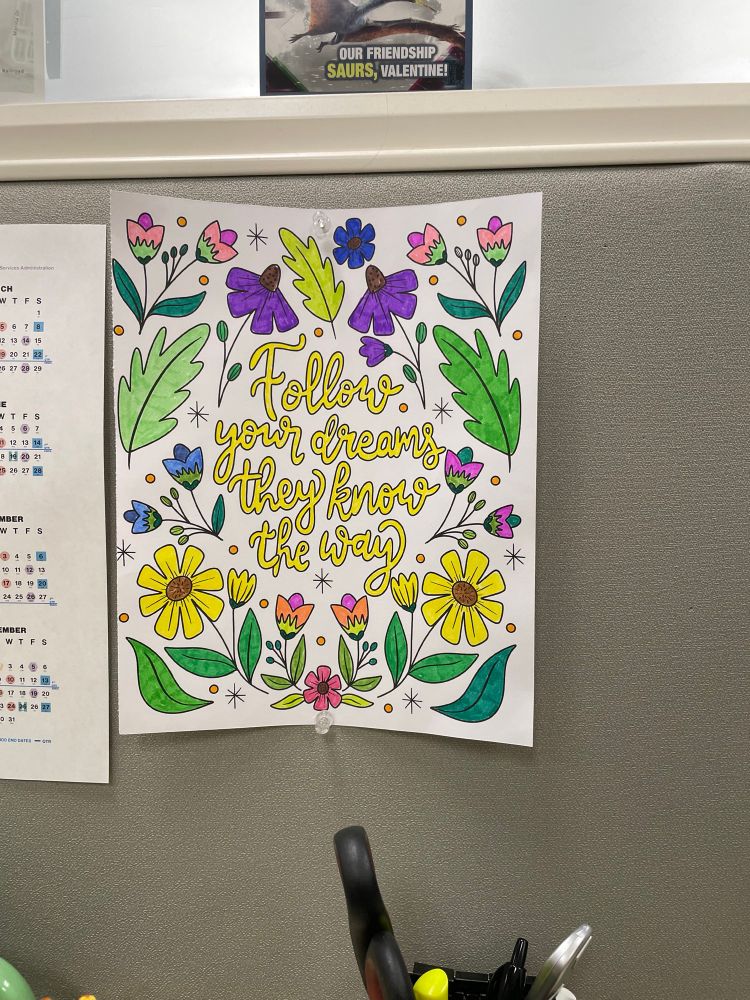 OUR FRIENDSHIP
SAURS, VALENTINE!
Follow
your dreams
they know
the way
Services Administration
CH
W T F S
1
5 6 7 8
12 13 14 15
19 20 21 22
26 27 28 29
W T F S
4 5 6 7
11 12 13 14
18 19 20 21
25 26 27 28
MBER
W T F S
3 4 5 6
10 11 12 13
17 18 19 20
24 25 26 27
EMBER
W T F S
3 4 5 6
10 11 12 13
17 18 19 20
24 25 26 27
31
END DATES QTR